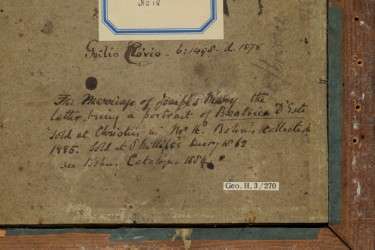 No 12
Giulio Clovio. b: 1498. d. 1578
The Marriage of Joseph & Mary the
latter being a portrait of Beatrice D'Este
sold at Christies in Mr H. Bohn's Collection
1885. Sold at Phillips's 1862
see Bohn's Catalogue 1884
Geo. H. 3/270